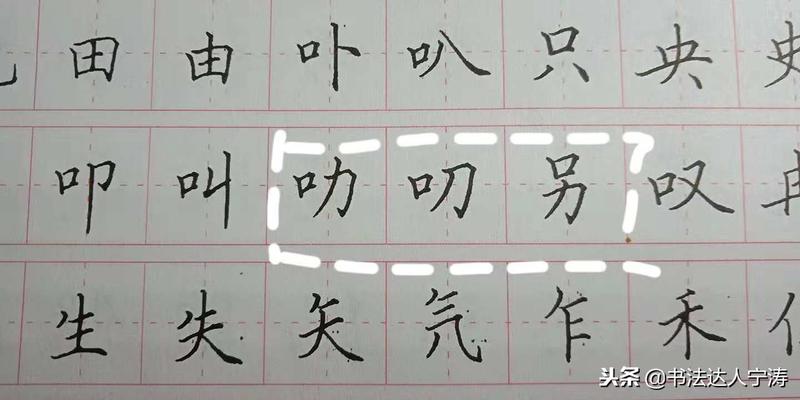 田由叶叭只央史
叩叫叻叨另叹冉
生失矢氕乍禾
头条 @书法达人宁涛